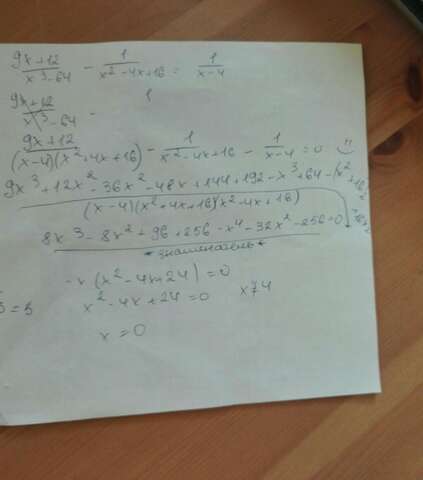 9x+12/x³-64 - 1/x²-4x+16 = 1/x-4
9x+12/x³-64 - 1
9x+12/(x-4)(x²+4x+16) - 1/x²-4x+16 - 1/x-4 = 0
9x³+12x²-36x²-48x+144+192-x³+64-(x²+16)²
(x-4)(x²+4x+16)(x²-4x+16)
8x³-8x²+96+256-x⁴-32x²-256=0
*знаменатель*
-x(x²-4x+24)=0
x²-4x+24=0 x≠4
5=5
x=0